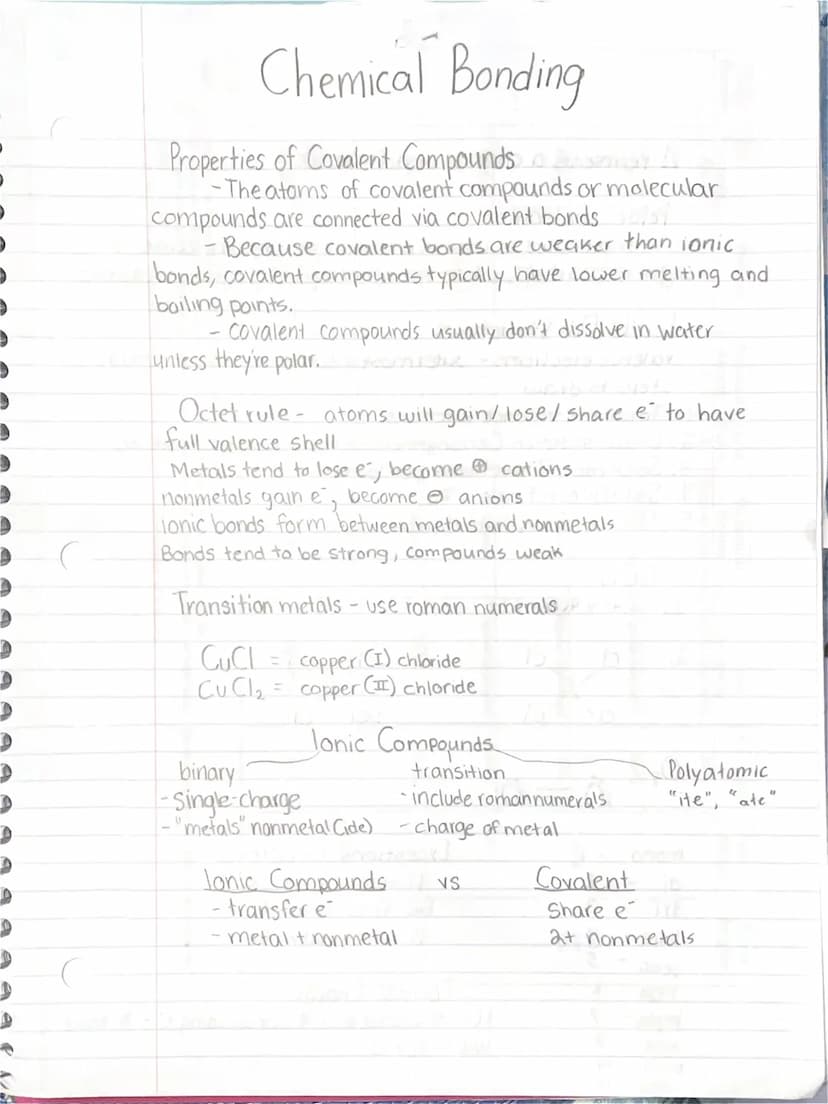 Chemical Bonding
Properties of Covalent Compounds
- The atoms of covalent compounds or molecular
compounds are connected via covalent bonds
- Because covalent bonds are weaker than ionic
bonds, covalent compounds typically have lower melting and
boiling points.
- Covalent compounds usually don't dissolve in water
unless they're polar.
Octet rule - atoms will gain/lose/share e⁻ to have
full valence shell
Metals tend to lose e⁻, become ⊕ cations
nonmetals gain e⁻, become ⊖ anions
ionic bonds form between metals and nonmetals
Bonds tend to be strong, compounds weak
Transition metals - use roman numerals
CuCl = copper (I) chloride
CuCl₂ = copper (II) chloride
Ionic Compounds
binary transition Polyatomic
- Single-charge - include roman numerals "ite", "ate"
- "metals" nonmetal (ide) - charge of metal
Ionic Compounds vs Covalent
- transfer e⁻ Share e⁻
- metal + nonmetal 2+ nonmetals